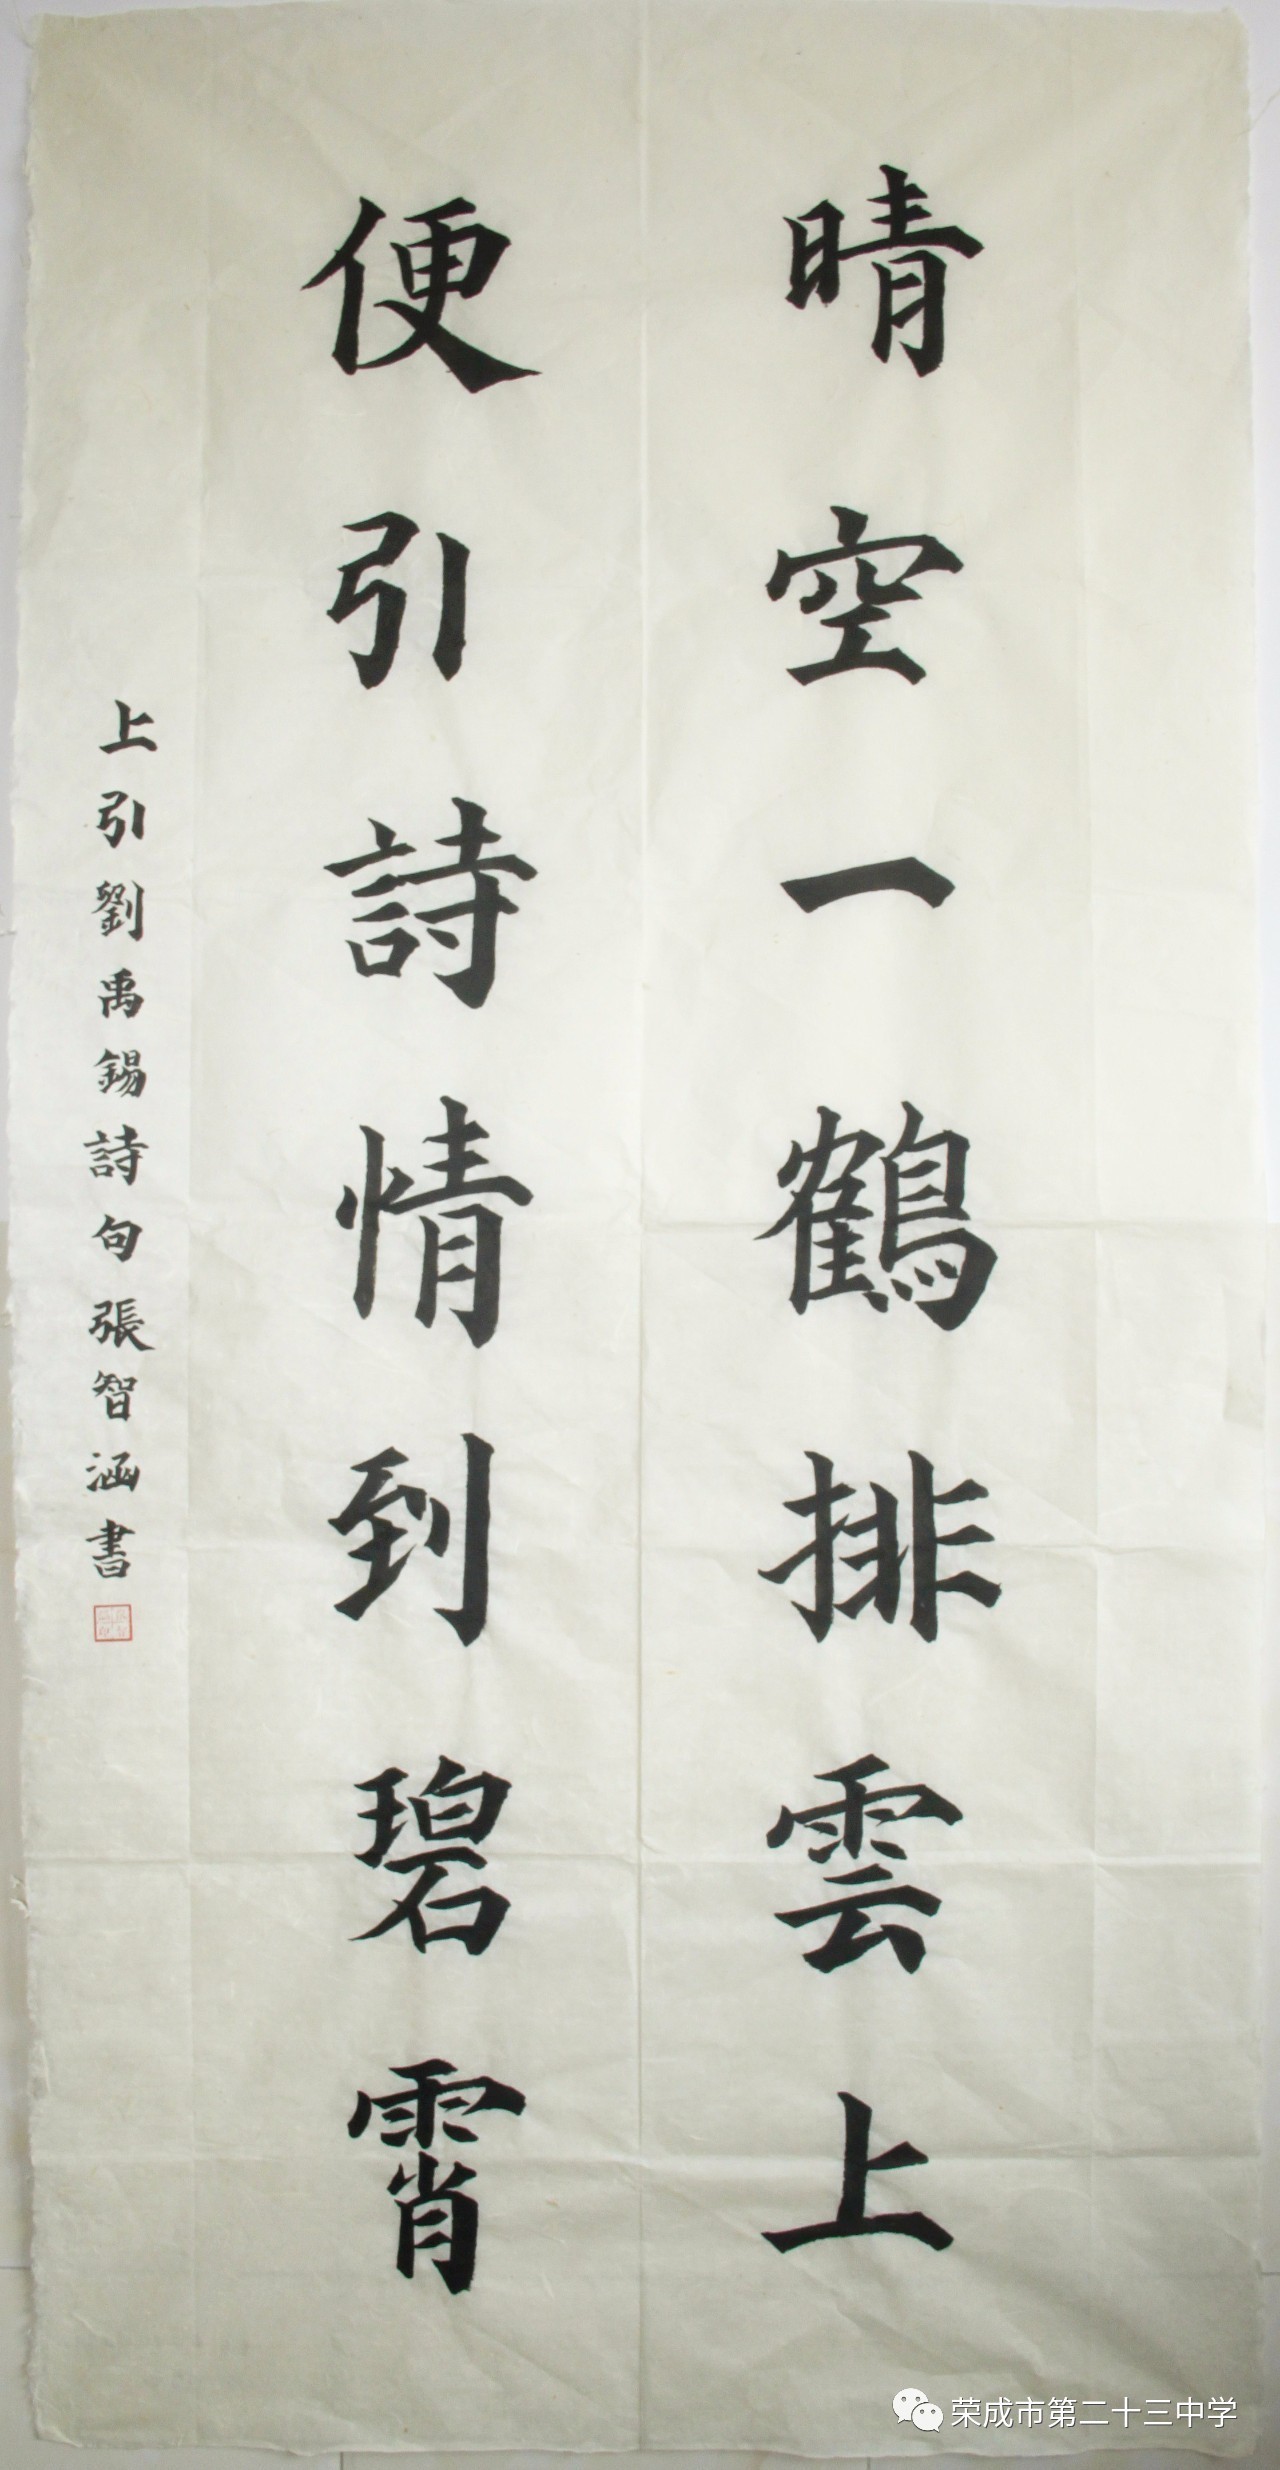 晴空一鶴排雲上
便引詩情到碧霄
上引劉禹錫詩句張智涵書
荣成市第二十三中学